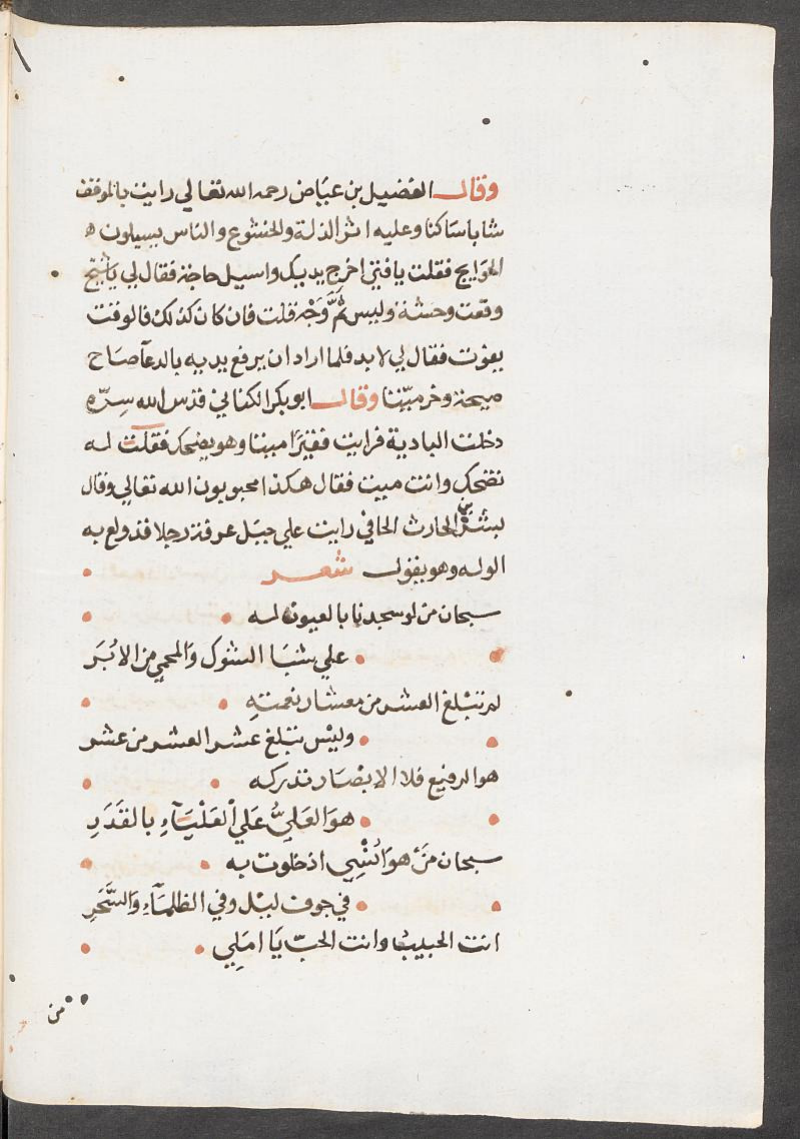 وقال الفضيل بن عياض رحمه الله تعالي رايت بالموقف
شابا ساكنا وعليه اثر الذلة والخشوع والناس يسيلون ه
الحوايج فقلت يا فتي اخرج يديك واسيل حاجة فقال لي يا شيخ
وقعت وحشة وليس ثَمَّ وَجْه قلت فان كان كذلك فالوقت
يفوت فقال لي لا بد فلما اراد ان يرفع يديه بالدعآ صاح
صيحة وخر ميّتا وقال ابو بكر الكتاني قدّس الله سِرّه
دخلت البادية فرايت فقيرًا ميتا وهو يضحك فقلت له
تضحك وانت ميت فقال هكذا محبوبون الله تعالي وقال
بشر بن الحارث الحافي رايت علي جبل عرفة رجلا قد ولع به
الوله وهو يقول شعر
سبحان من لو سجدنا بالعيون له
علي شبا الشوك والمحمي من الابَرَ
لم نَبْلغ العشر من معشار نعمتهِ
وليْس نبْلغ عشر العشر من عشر
هو الرفيع فلا الابْصَار تدركه
هوَ العَليُّ عَلي العَلْيَآءِ بالقَدَرِ
سبحان مَنْ هوَ اُنْسِي اذ خلوت به
في جوف ليْل وفي الظلمَآءِ وَالسَّحَرِ
انت الحبيبُ وانت الحبّ يَا امَلِي
من